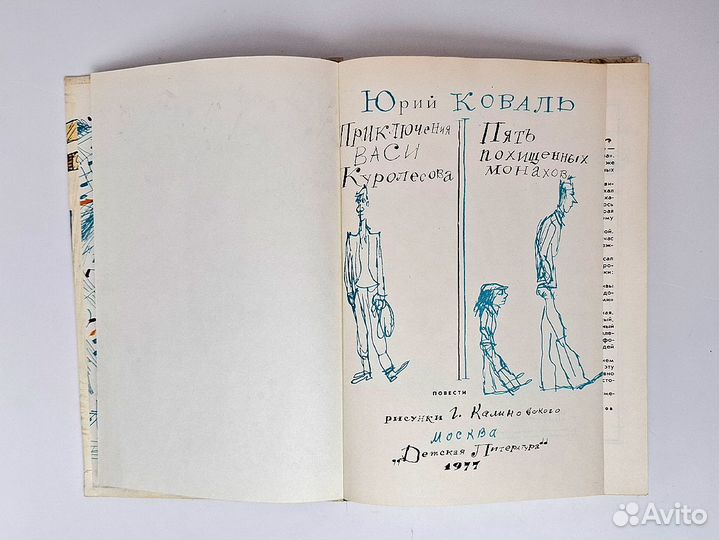 Юрий КОВАЛЬ
ПРИКЛЮЧЕНИЯ
ВАСИ
КУРОЛЕСОВА
ПЯТЬ
ПОХИЩЕННЫХ
МОНАХОВ
ПОВЕСТИ
рисунки Г. Калиновского
МОСКВА
„Детская Литература"
1977
Avito